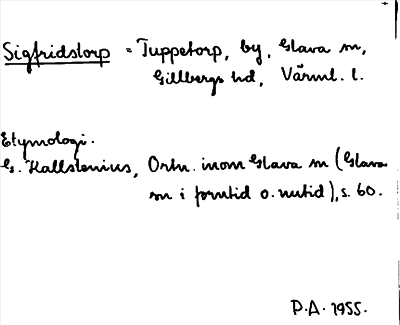 Sigfridstorp = Tuppetorp, by, Glava sn,
Gillbergs hd, Värml. l.
Etymologi.
G. Kallstenius, Ortn. inom Glava sn (Glava
sn i forntid o. nutid), s. 60.
P.A. 1955.